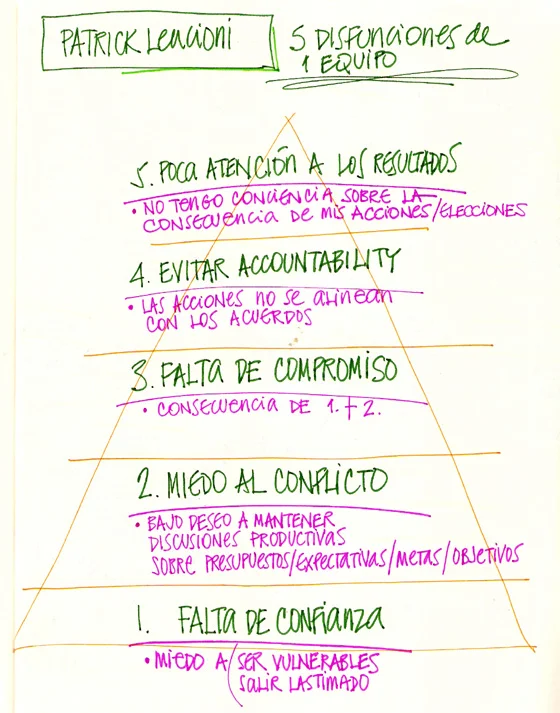 PATRICK Lencioni
5 DISFUNCIONES de
1 EQUIPO
5. POCA ATENCIÓN A LOS RESULTADOS
• NO TENGO CONCIENCIA SOBRE LA
CONSECUENCIA DE MIS ACCIONES/ELECCIONES
4. EVITAR ACCOUNTABILITY
• LAS ACCIONES NO SE ALINEAN
CON LOS ACUERDOS
3. FALTA DE COMPROMISO
• CONSECUENCIA DE 1. + 2.
2. MIEDO AL CONFLICTO
• BAJO DESEO A MANTENER
DISCUSIONES PRODUCTIVAS
SOBRE PRESUPUESTOS/EXPECTATIVAS/METAS/OBJETIVOS
1. FALTA DE CONFIANZA
• MIEDO A/SER VULNERABLES
SALIR LASTIMADO